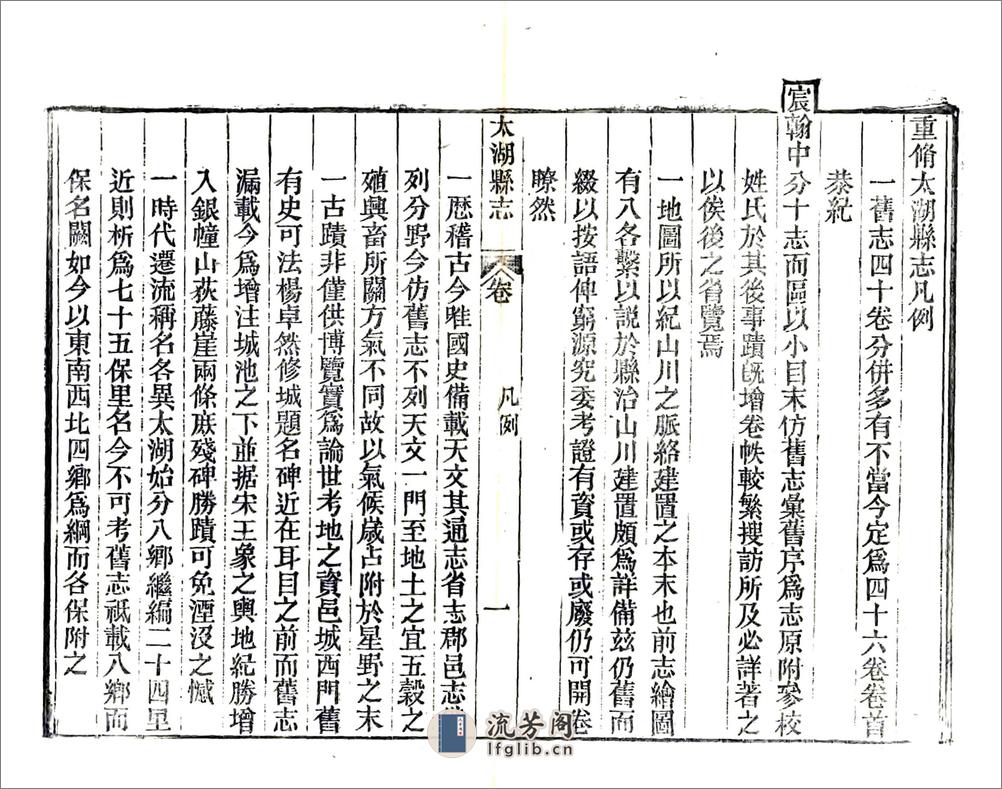 重脩太湖縣志凡例
一舊志四十卷分併多有不當今定爲四十六卷卷首
恭紀
宸翰中分十志而區以小目末仿舊志彙舊序爲志原附參校
姓氏於其後事蹟旣增卷帙較繁搜訪所及必詳著之
以俟後之省覽焉
一地圖所以紀山川之脈絡建置之本末也前志繪圖
有八各繫以說於縣治山川建置頗爲詳備兹仍舊而
綴以按語俾窮源究委考證有資或存或廢仍可開卷
瞭然
太湖縣志 卷 凡例 一
一歷稽古今唯國史備載天文其通志省志郡邑志止
列分野今仿舊志不列天文一門至地土之宜五穀之
殖興畜所關方氣不同故以氣候歲占附於星野之末
一古蹟非僅供博覽實爲論世考地之資邑城西門舊
有史可法楊卓然修城題名碑近在耳目之前而舊志
漏載今爲增注城池之下並据宋王象之輿地紀勝增
入銀幢山荻藤崖兩條庶殘碑勝蹟可免湮沒之憾
一時代遷流稱名各異太湖始分八鄉繼編二十四里
近則析爲七十五保里名今不可考舊志祇載八鄉而
保名闕如今以東南西北四鄉爲綱而各保附之
流芳阁
lfglib.cn